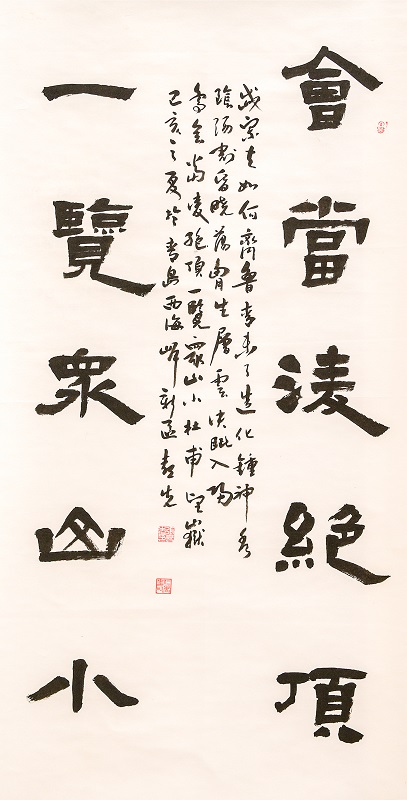 會當淩絕頂
岱宗夫如何齊魯青未了造化鍾神秀
陰陽割昏曉蕩胸生層雲決眥入歸
鳥會當凌絕頂一覽衆山小杜甫望嶽
己亥之夏於青島西海岸新區
一覽衆山小